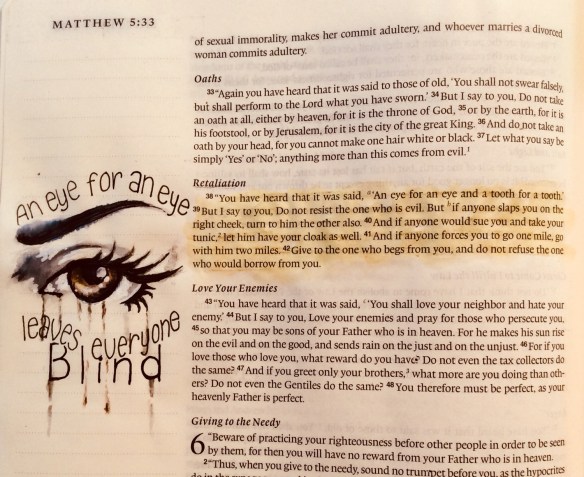 MATTHEW 5:33
of sexual immorality, makes her commit adultery, and whoever marries a divorced
woman commits adultery.
Oaths
33 “Again you have heard that it was said to those of old, ‘You shall not swear falsely,
but shall perform to the Lord what you have sworn.’ 34 But I say to you, Do not take
an oath at all, either by heaven, for it is the throne of God, 35 or by the earth, for it is
his footstool, or by Jerusalem, for it is the city of the great King. 36 And do not take an
oath by your head, for you cannot make one hair white or black. 37 Let what you say be
simply ‘Yes’ or ‘No’; anything more than this comes from evil.1
Retaliation
38 “You have heard that it was said, ‘An eye for an eye and a tooth for a tooth.’
39 But I say to you, Do not resist the one who is evil. But h if anyone slaps you on the
right cheek, turn to him the other also. 40 And if anyone would sue you and take your
tunic,2 let him have your cloak as well. 41 And if anyone forces you to go one mile, go
with him two miles. 42 Give to the one who begs from you, and do not refuse the one
who would borrow from you.
Love Your Enemies
43 “You have heard that it was said, ‘You shall love your neighbor and hate your
enemy.’ 44 But I say to you, Love your enemies and pray for those who persecute you,
45 so that you may be sons of your Father who is in heaven. For he makes his sun rise
on the evil and on the good, and sends rain on the just and on the unjust. 46 For if you
love those who love you, what reward do you have? Do not even the tax collectors do
the same? 47 And if you greet only your brothers,3 what more are you doing than oth-
ers? Do not even the Gentiles do the same? 48 You therefore must be perfect, as your
heavenly Father is perfect.
Giving to the Needy
6 “Beware of practicing your righteousness before other people in order to be seen
by them, for then you will have no reward from your Father who is in heaven.
2 “Thus, when you give to the needy, sound no trumpet before you, as the hypocrites
do in the
An eye for an eye
leaves everyone
Blind